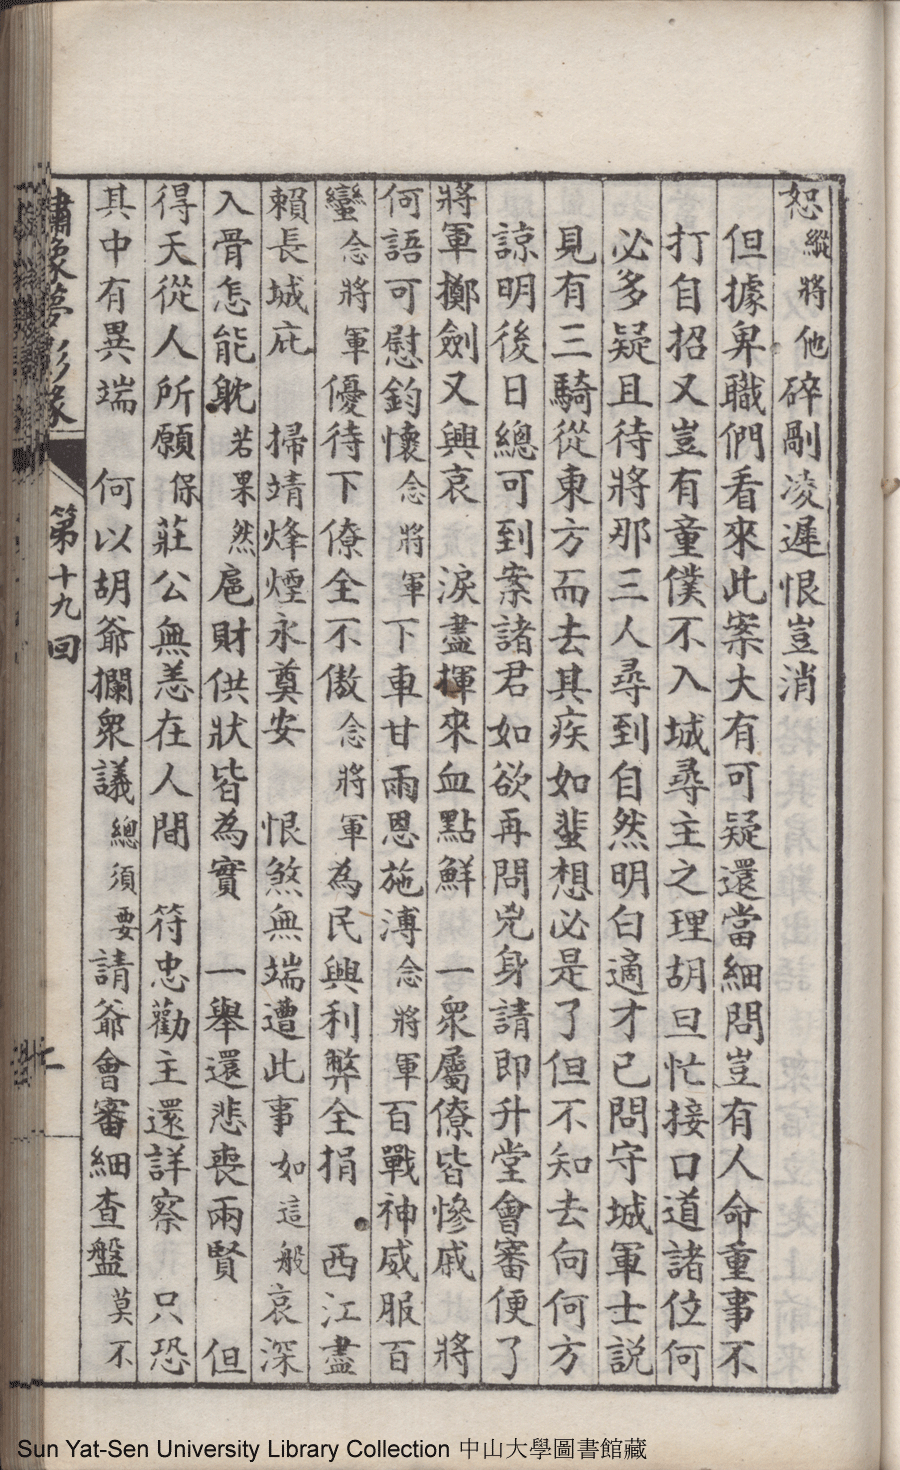 恕縱將他碎剮凌遲恨豈消
但據卑職們看來此案大有可疑還當細問豈有人命重事不
打自招又豈有童僕不入城尋主之理胡旦忙接口道諸位何
必多疑且待將那三人尋到自然明白適才已問守城軍士説
見有三騎從東方而去其疾如蜚想必是了但不知去向何方
諒明後日總可到案諸君如欲再問兇身請即升堂會審便了
將軍擲劍又興哀 淚盡揮來血點鮮 一衆屬僚皆慘戚 將
何語可慰鈞懷念將軍下車甘雨恩施溥念將軍百戰神威服百
蠻念將軍優待下僚全不傲念將軍為民興利弊全捐 西江盡
賴長城庇 掃靖烽煙永奠安 恨煞無端遭此事如這般哀深
入骨怎能躭若果然扈財供狀皆為實 一舉還悲喪兩賢 但
得天從人所願保莊公無恙在人間 符忠勸主還詳察 只恐
其中有異端 何以胡爺攔衆議總須要請爺會審細查盤莫不
繡像夢影緣 第十九回
Sun Yat-Sen University Library Collection 中山大學圖書館藏